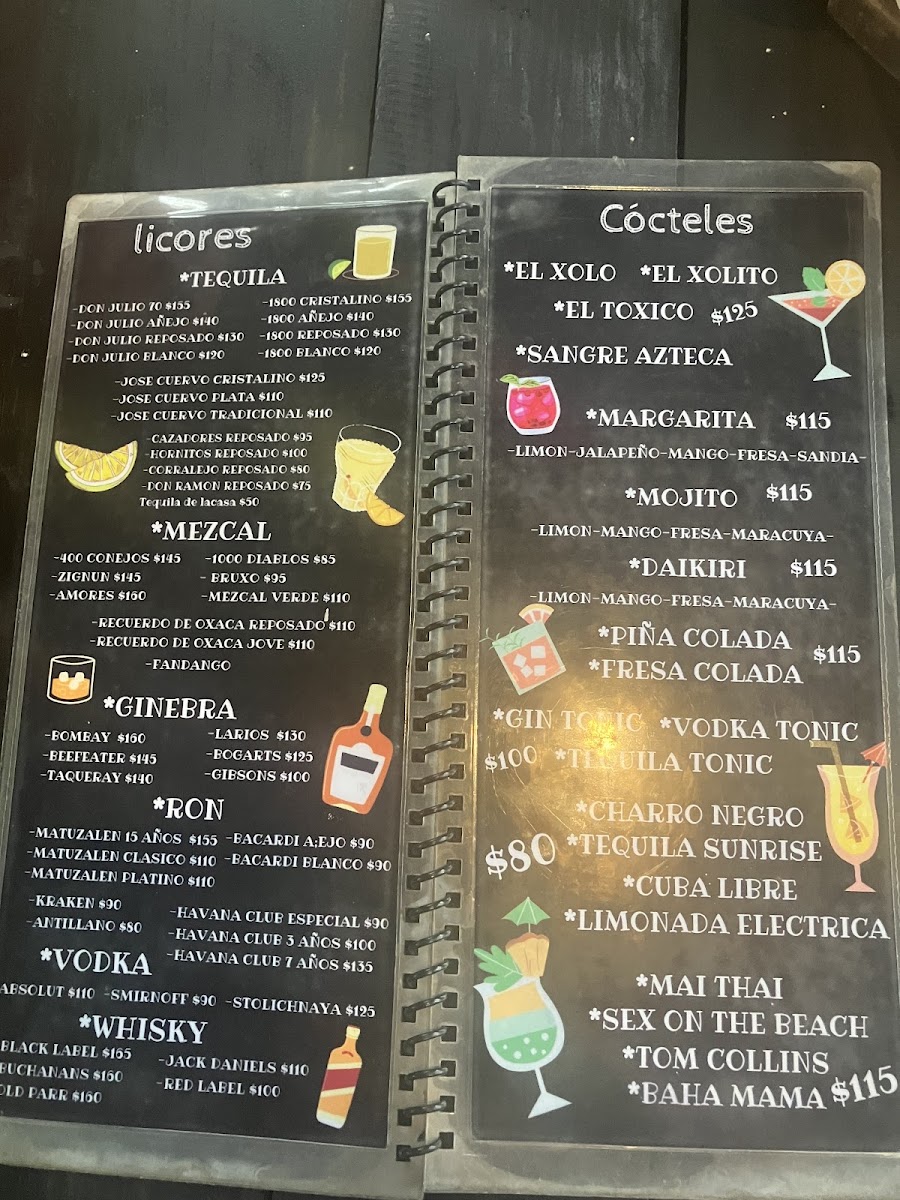 licores
*TEQUILA
-DON JULIO 70 $155
-DON JULIO AÑEJO $140
-DON JULIO REPOSADO $130
-DON JULIO BLANCO $120
-1800 CRISTALINO $155
-1800 AÑEJO $140
-1800 REPOSADO $130
-1800 BLANCO $120
-JOSE CUERVO CRISTALINO $125
-JOSE CUERVO PLATA $110
-JOSE CUERVO TRADICIONAL $110
-CAZADORES REPOSADO $95
-HORNITOS REPOSADO $100
-CORRALEJO REPOSADO $80
-DON RAMON REPOSADO $75
Tequila de lacasa $50
*MEZCAL
-400 CONEJOS $145
-ZIGNUN $145
-AMORES $160
-1000 DIABLOS $85
- BRUXO $95
-MEZCAL VERDE $110
-RECUERDO DE OXACA REPOSADO $110
-RECUERDO DE OXACA JOVE $110
-FANDANGO
*GINEBRA
-BOMBAY $160
-BEEFEATER $145
-TAQUERAY $140
-LARIOS $130
-BOGARTS $125
-GIBSONS $100
*RON
-MATUZALEN 15 AÑOS $155
-MATUZALEN CLASICO $110
-MATUZALEN PLATINO $110
-BACARDI A;EJO $90
-BACARDI BLANCO $90
-KRAKEN $90
-ANTILLANO $80
-HAVANA CLUB ESPECIAL $90
-HAVANA CLUB 3 AÑOS $100
-HAVANA CLUB 7 AÑOS $135
*VODKA
ABSOLUT $110 -SMIRNOFF $90 -STOLICHNAYA $125
*WHISKY
BLACK LABEL $165
BUCHANANS $160
OLD PARR $160
-JACK DANIELS $110
-RED LABEL $100
Cócteles
*EL XOLO *EL XOLITO
*EL TOXICO $125
*SANGRE AZTECA
*MARGARITA $115
-LIMON-JALAPEÑO-MANGO-FRESA-SANDIA-
*MOJITO $115
-LIMON-MANGO-FRESA-MARACUYA-
*DAIKIRI $115
-LIMON-MANGO-FRESA-MARACUYA-
*PIÑA COLADA
*FRESA COLADA $115
*GIN TONIC *VODKA TONIC
$100 *TEQUILA TONIC
*CHARRO NEGRO
$80 *TEQUILA SUNRISE
*CUBA LIBRE
*LIMONADA ELECTRICA
*MAI THAI
*SEX ON THE BEACH
*TOM COLLINS
*BAHA MAMA $115